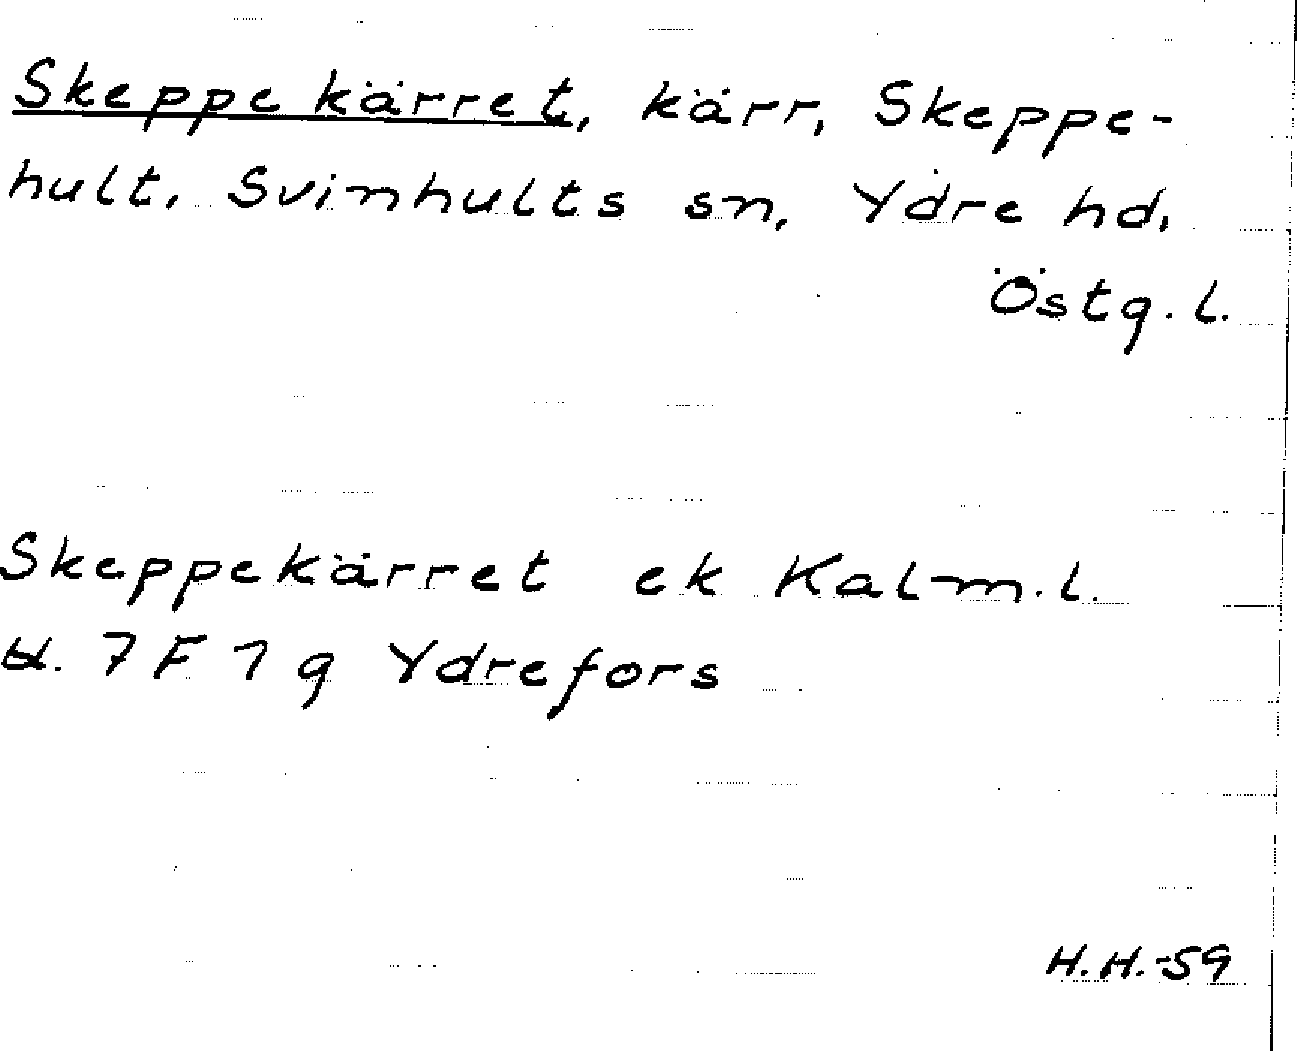 Skeppekärret, kärr, Skeppe-
hult, Svinhults sn, Ydre hd,
Östg. l.
Skeppekärret ek Kalm. l.
7 F 1 g Ydrefors
H.H.-59